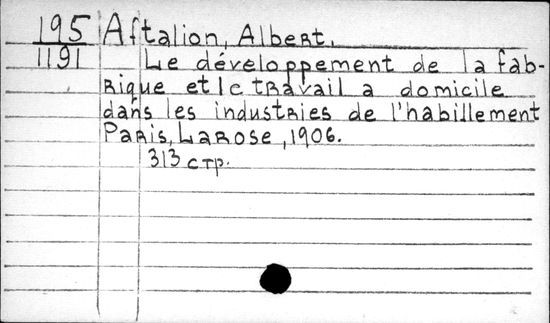 195 Aftalion, Albert.
1191 Le développement de la fab-
rique et le travail a domicile
dans les industries de l'habillement
Paris, Larose, 1906.
313 стр.